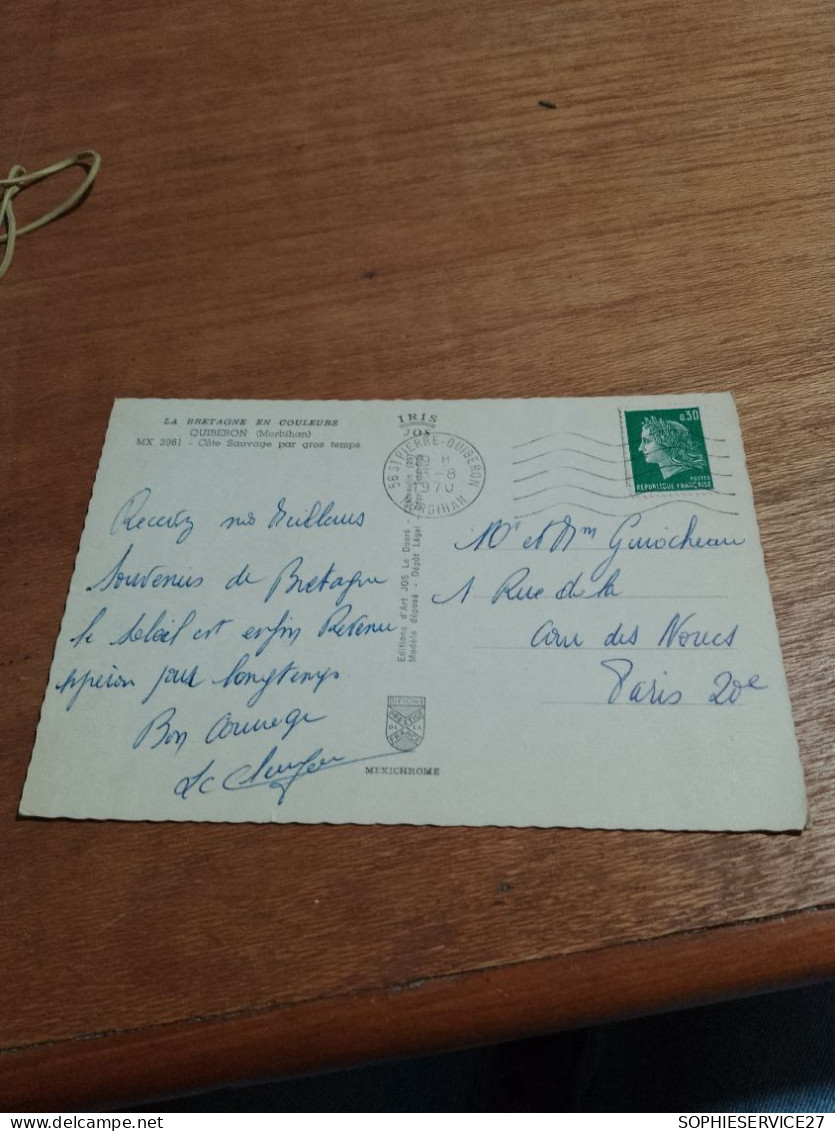 LA BRETAGNE EN COULEURS
QUIBERON (Morbihan)
MX 3961 - Côte Sauvage par gros temps
IRIS
JOS
56 ST PIERRE-QUIBERON
MORBIHAN
-8
1970
0,30
POSTES
REPUBLIQUE FRANÇAISE
Recevez nos Meilleurs
Souvenirs de Bretagne
le Soleil est enfin Revenu
pour longtemps
Bon Courage
Editions d'Art JOS Le Doaré -
Modèle déposé - Dépôt Légal
PRESTIGE
DE LA
FRANCE
MEXICHROME
Mr et Mm Guiocheau
1 Rue de la
Cour des Noues
Paris 20e
SOPHIESERVICE27